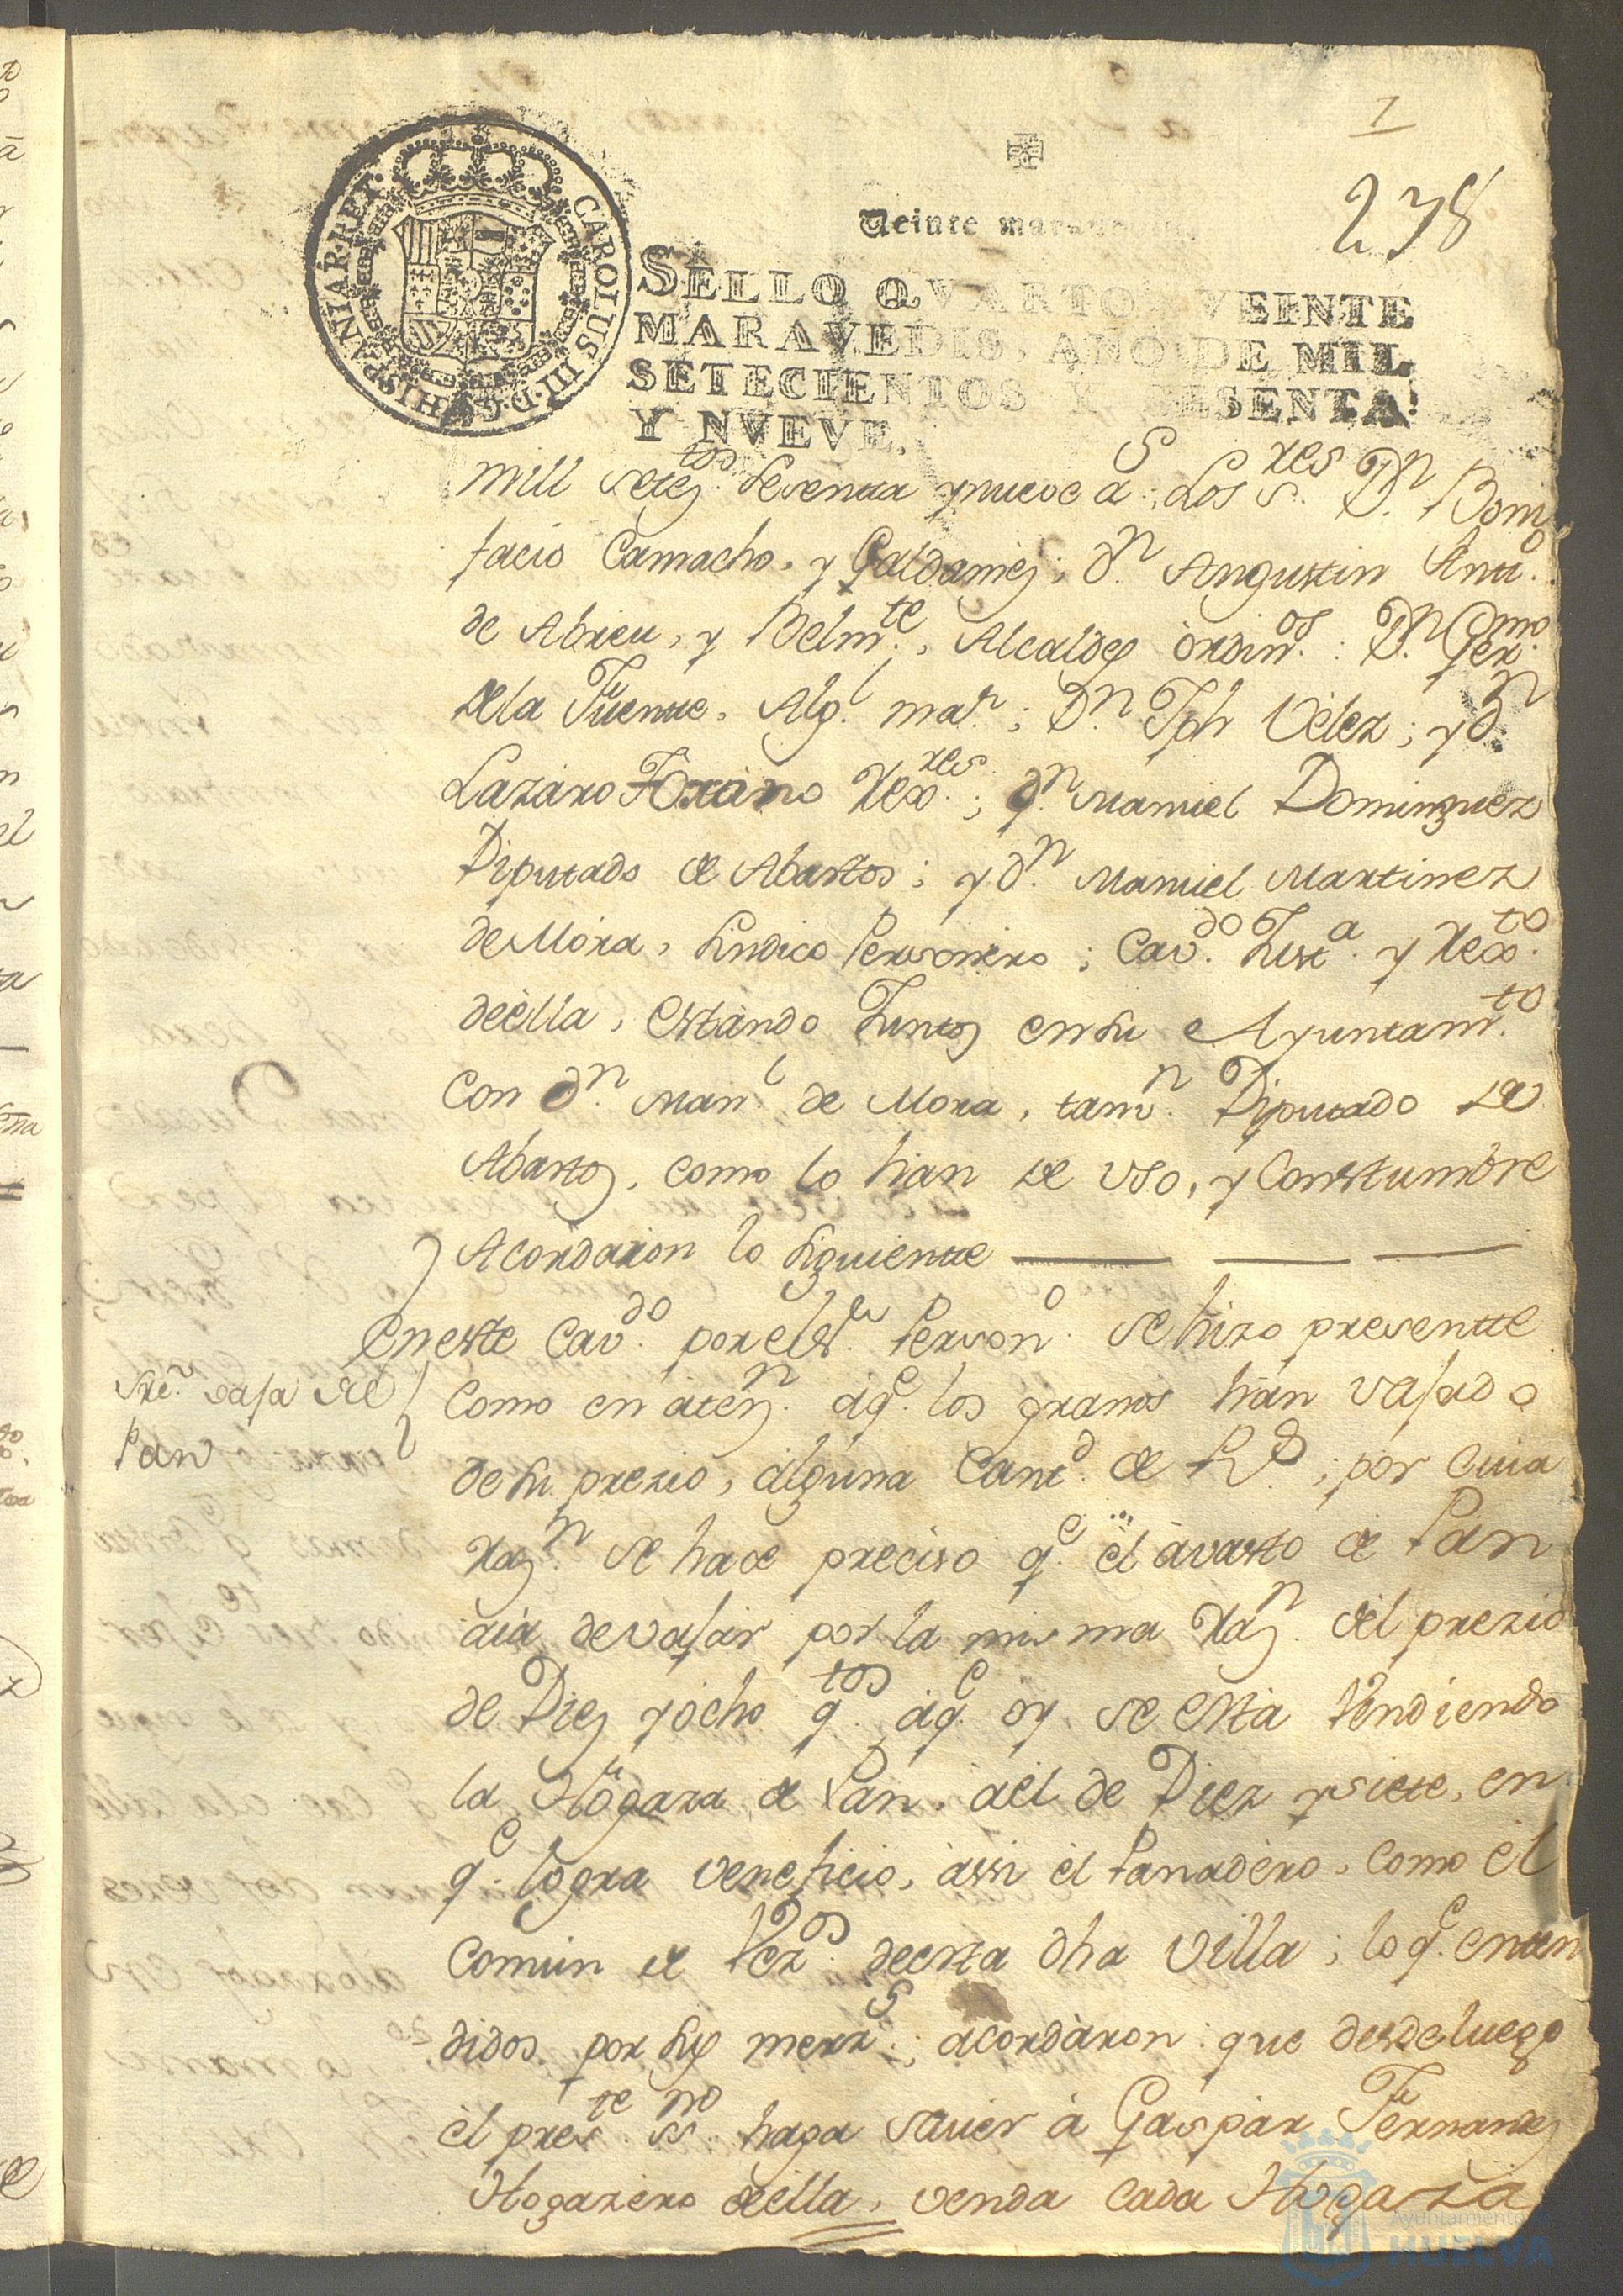 1
278
CAROLUS III·D·G·HISPANIAR·REX·
Veinte maravedis
SELLO QVARTO, VEINTE
MARAVEDIS, AÑO DE MIL
SETECIENTOS Y SESENTA
Y NVEVE.
mill setez.tos sesenta y nueve a.s; Los S.res D.n Boni
facio Camacho, y Galdamez; D.n Angustin Antt.o
de Abreu, y Belm.te, Alcaldes ordin.os: D.n Ger.mo
de la Fuente, Alg.l ma.r; D.n Jph Velez; y D.n
Lazaro Forano Rex.res; D.n Manuel Dominguez
Diputado de Abastos; y D.n Manuel Martinez
de Mora, Sindico Personero; Cav.do Just.a y Rex.to
de ella, estando Juntos en su Ayuntam.to
Con D.n Man.l de Mora, tam.n Diputado de
Abastos, como lo han de uso, y Constumbre
Acordaron lo Siguiente
En este Cav.do por el S.r Person.o se hizo presentte
Sre. vaja de
Pan
Como en aten.n a q.e los granos han vajado
de su prezio, alguna Cant.d de R.s; por cuia
Raz.n se hace preciso q.e el avasto de Pan
aia de vajar por la misma Raz.n del prezio
de Diez y ocho q.tos a q.e oy se esta Vendiendo
la Hogaza de Pan, ael de Diez y siete, en
q.e logra veneficio, assi el Panadero, como el
Comun de Vez.os de esta dha Villa; lo q.e enten
didos por sus merz.s; acordaron: que desde luego
el pres.te ss.no haga saver à Gaspar Fernandez
Hogazero de ella, venda cada Hogaza
Ayuntamiento de
HUELVA